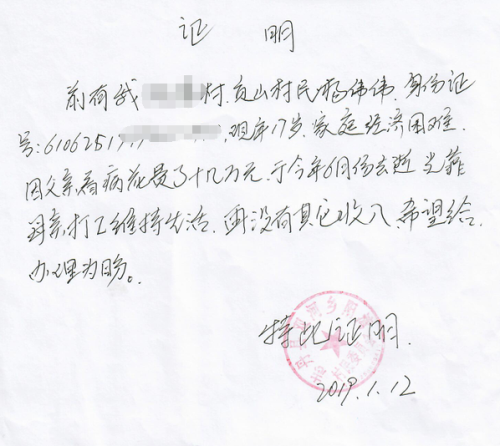 证 明
前有我 村 村民杨伟伟 身份证
号:610625199 ,现年17岁.家庭经济困难.
因父亲看病花费了十几万元.于今年6月份去逝 光靠
母亲打工维持生活.再没有其它收入.希望给
办理为盼。
特此证明.
2019.1.12